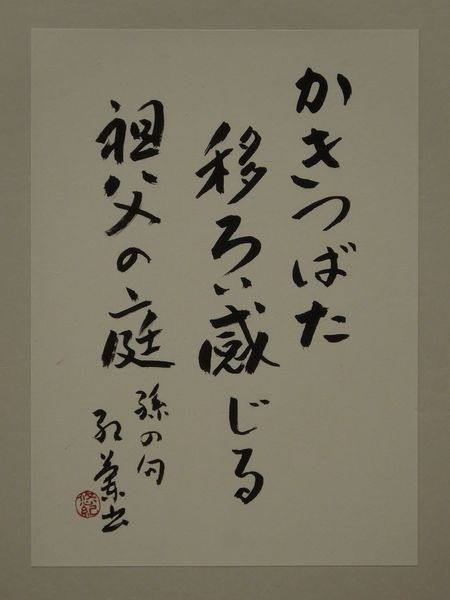 かきつばた
移ろい感じる
祖父の庭
孫の句